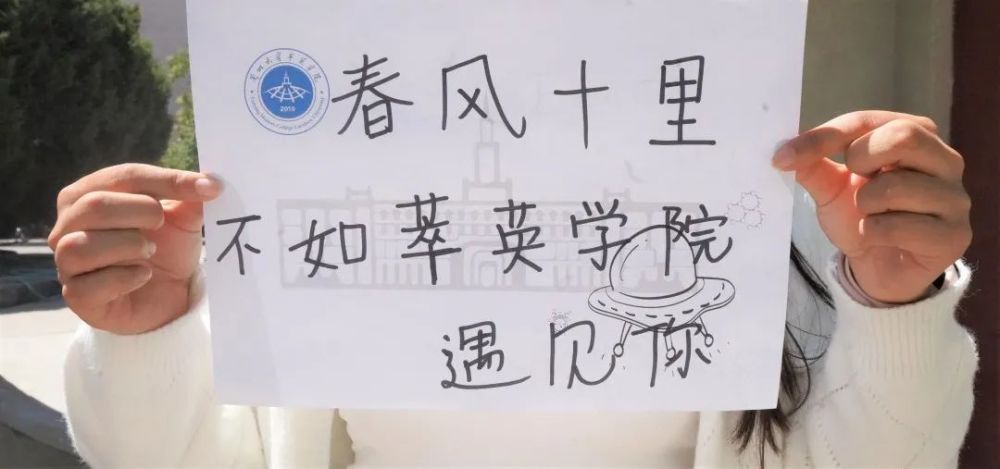 春风十里
不如萃英学院
遇见你
2010